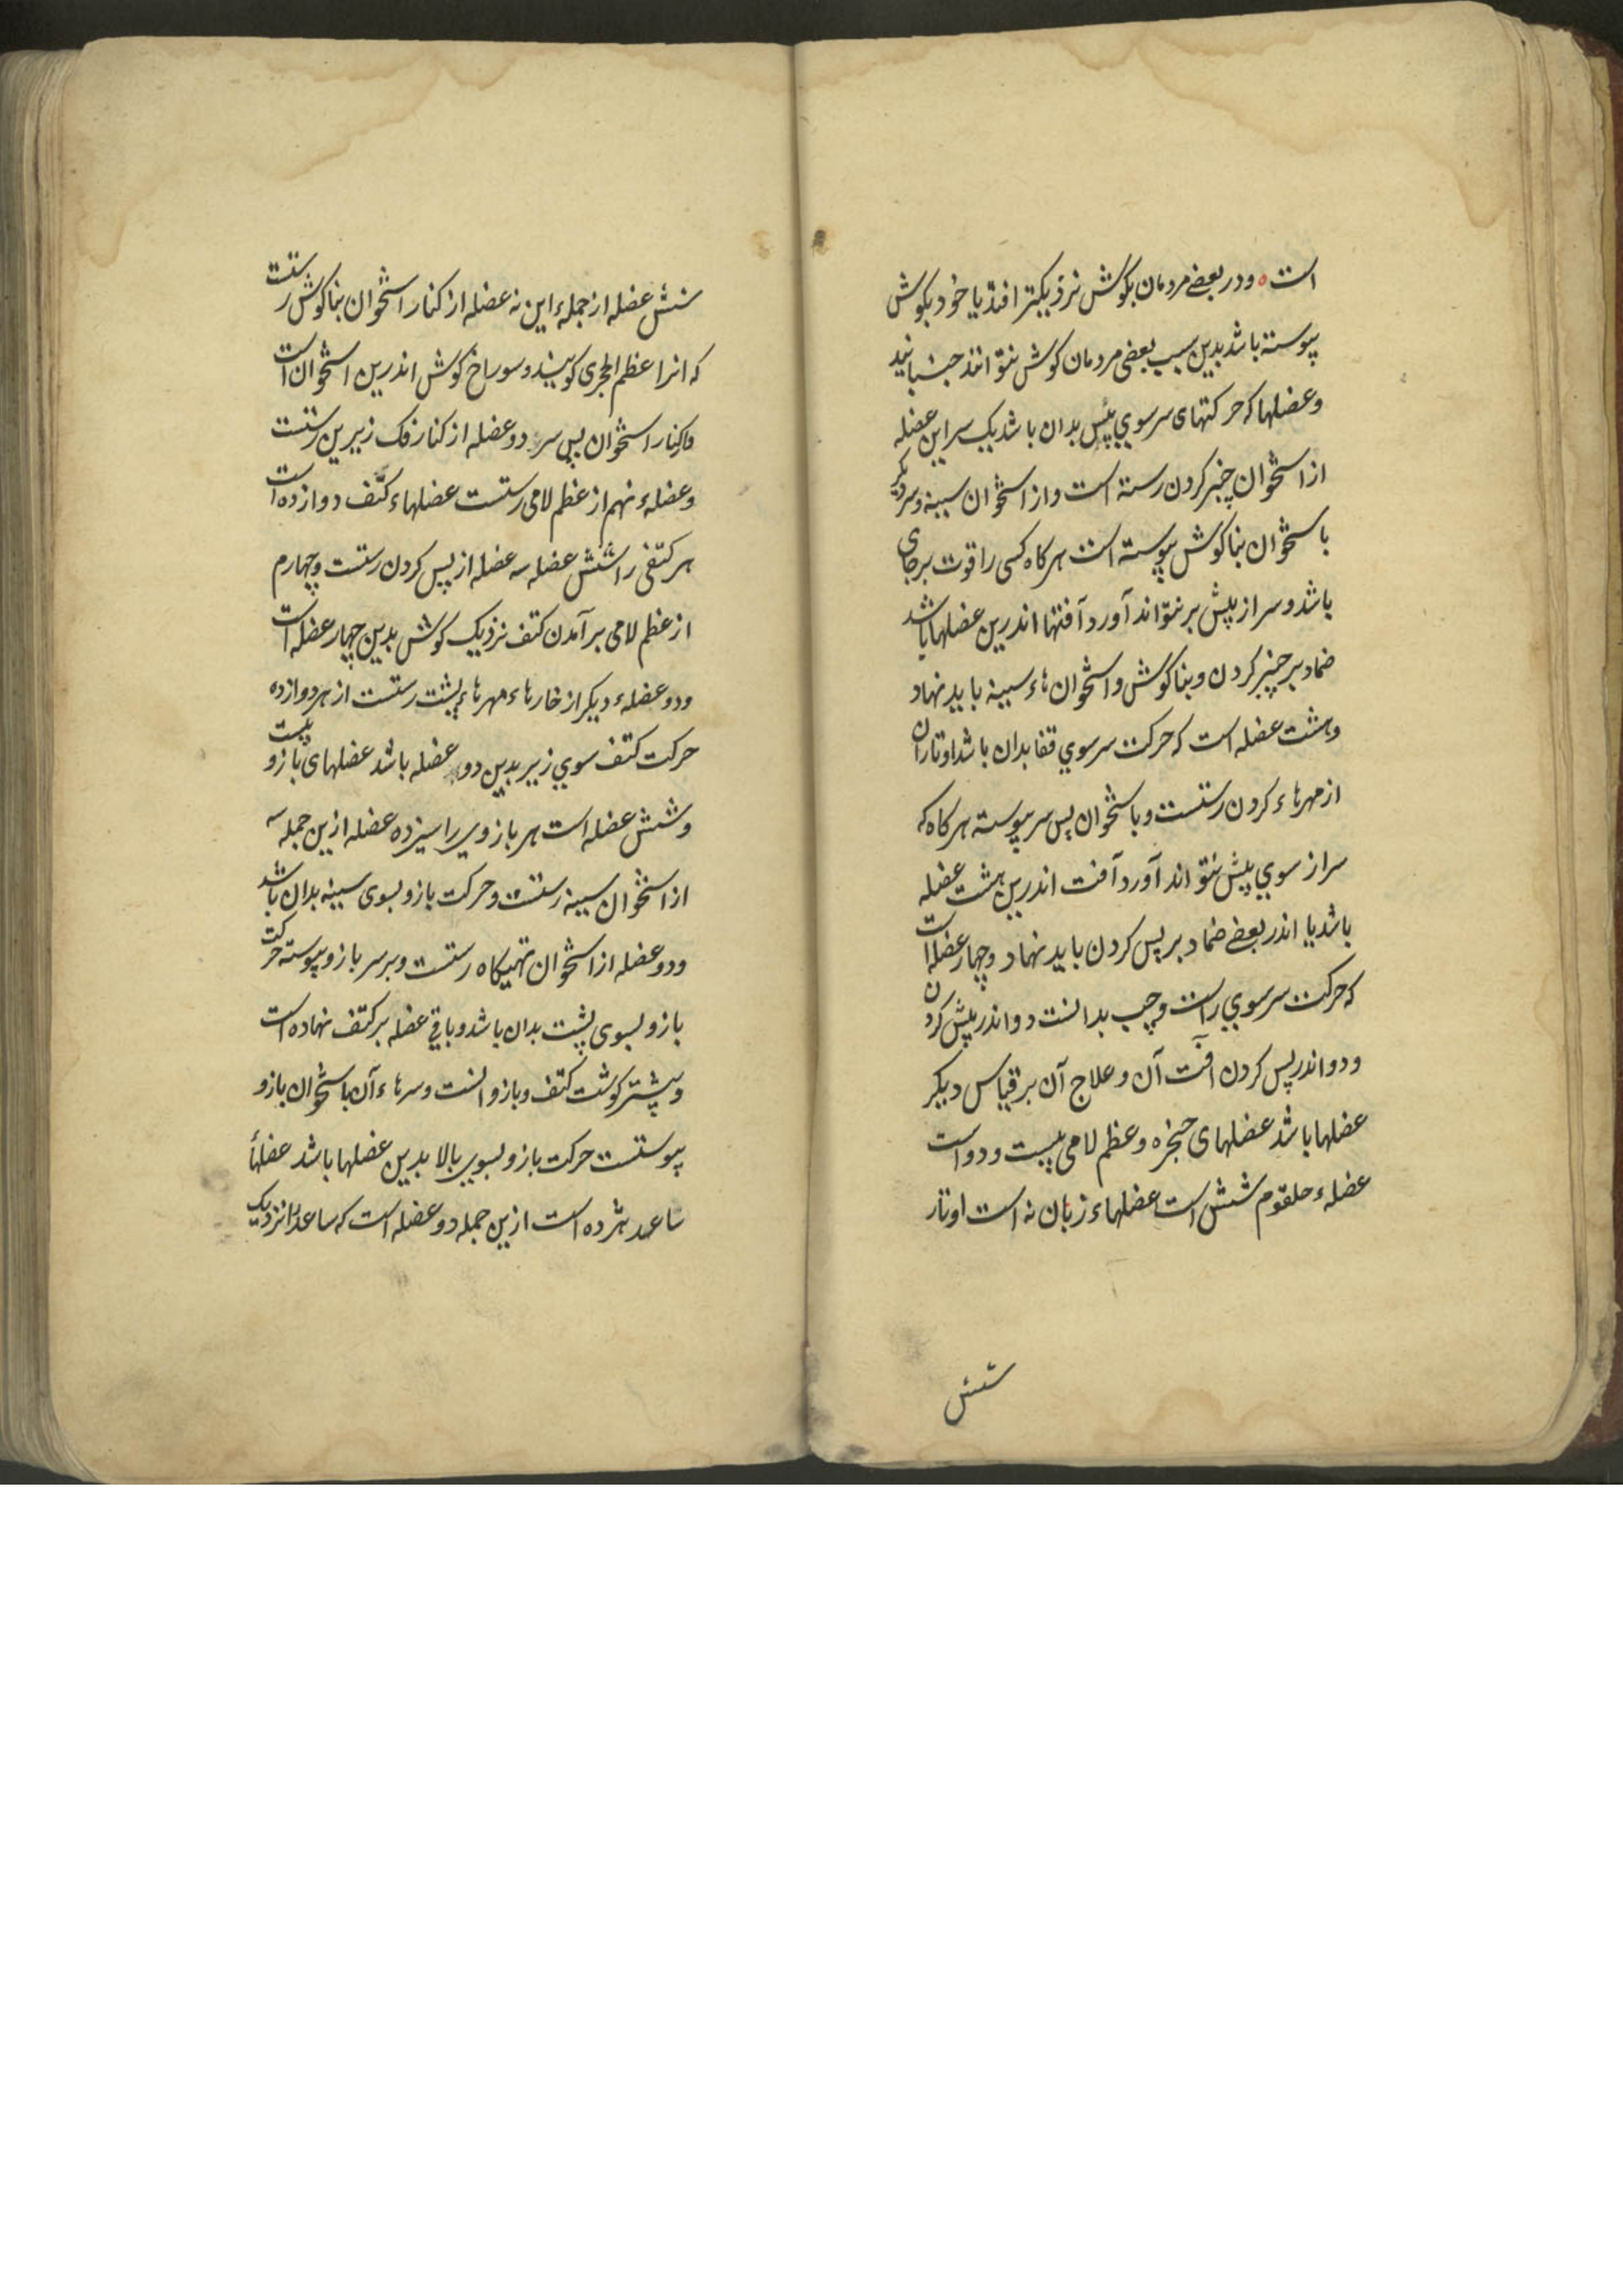 است ۰ ودر بعضے مردمان بکوش نزدیکتر افتد یا خود بکوش
پیوسته باشد بدین سبب بعضی مردمان کوش بتوانند جنبانید
وعضلها که حرکتهای سر سوي پیش بدان باشد یک سر این عضله
از استخوان چنبر کردن رسته است واز استخوان سینه وسر دیکر
با ستخوان بناکوش پیوسته است هرکاه کسی را قوت برجای
باشد وسر از پیش بر نتواند آورد آفتها اندرین عضلها باشد
ضماد بر چنبر کردن وبناکوش واستخوان هاء سینه باید نهاد
وهشت عضله است که حرکت سر سوي قفا بدان باشد اوتاران
از مهرهاء کردن رستست وبا ستخوان پس سر پیوسته هرکاه که
سر از سوي پیش نتواند آورد آفت اندرین هشت عضله
باشد یا اندر بعضے ضماد بر پس کردن باید نهاد وچهار عضله است
که حرکت سر سوي راست وچپ بدانست دو اندر پیش کردن
ودو اندر پس کردن آفت آن وعلاج آن بر قیاس دیکر
عضلها باشد عضلهای حنجره وعظم لامی بیست ودو است
عضلهء حلقوم شش است عضلهاء زبان نه است اوتار
شش
شش عضله از جملهء این نه عضله از کنار استخوان بناکوش رستست
که انرا عظم الحجری کویند وسوراخ کوش اندرین استخوان است
تا کنار استخوان پس سر دو عضله از کنار فک زیرین رستست
وعضلهء نهم از عظم لامی رستست عضلهاء کتف دوازده است
هر کتفی را شش عضله سه عضله از پس کردن رستست وچهارم
از عظم لامی بر آمدن کتف نزدیک کوش بدین چهار عضله است
ودو عضلهء دیکر از خارهاء مهرهاء پشت رستست از هر دوازده
حرکت کتف سوي زیر بدین دو عضله باشد عضلهای بازو بیست
وشش عضله است هر بازوي را سیزده عضله ازین جمله سه
از استخوان سینه رستست وحرکت بازو بسوی سینه بدان باشد
ودو عضله از استخوان تهیکاه رستست وبر سر بازو پیوسته حرکت
بازو بسوی پشت بدان باشد وباقي عضله بر کتف نهاده است
وبیشتر کوشت کتف وبازو انست وسرهاء آن با ستخوان بازو
پیوستست حرکت بازو بسوي بالا بدین عضلها باشد عضلهأ
ساعد هژده است ازین جمله دو عضله است که ساعد را نزدیک